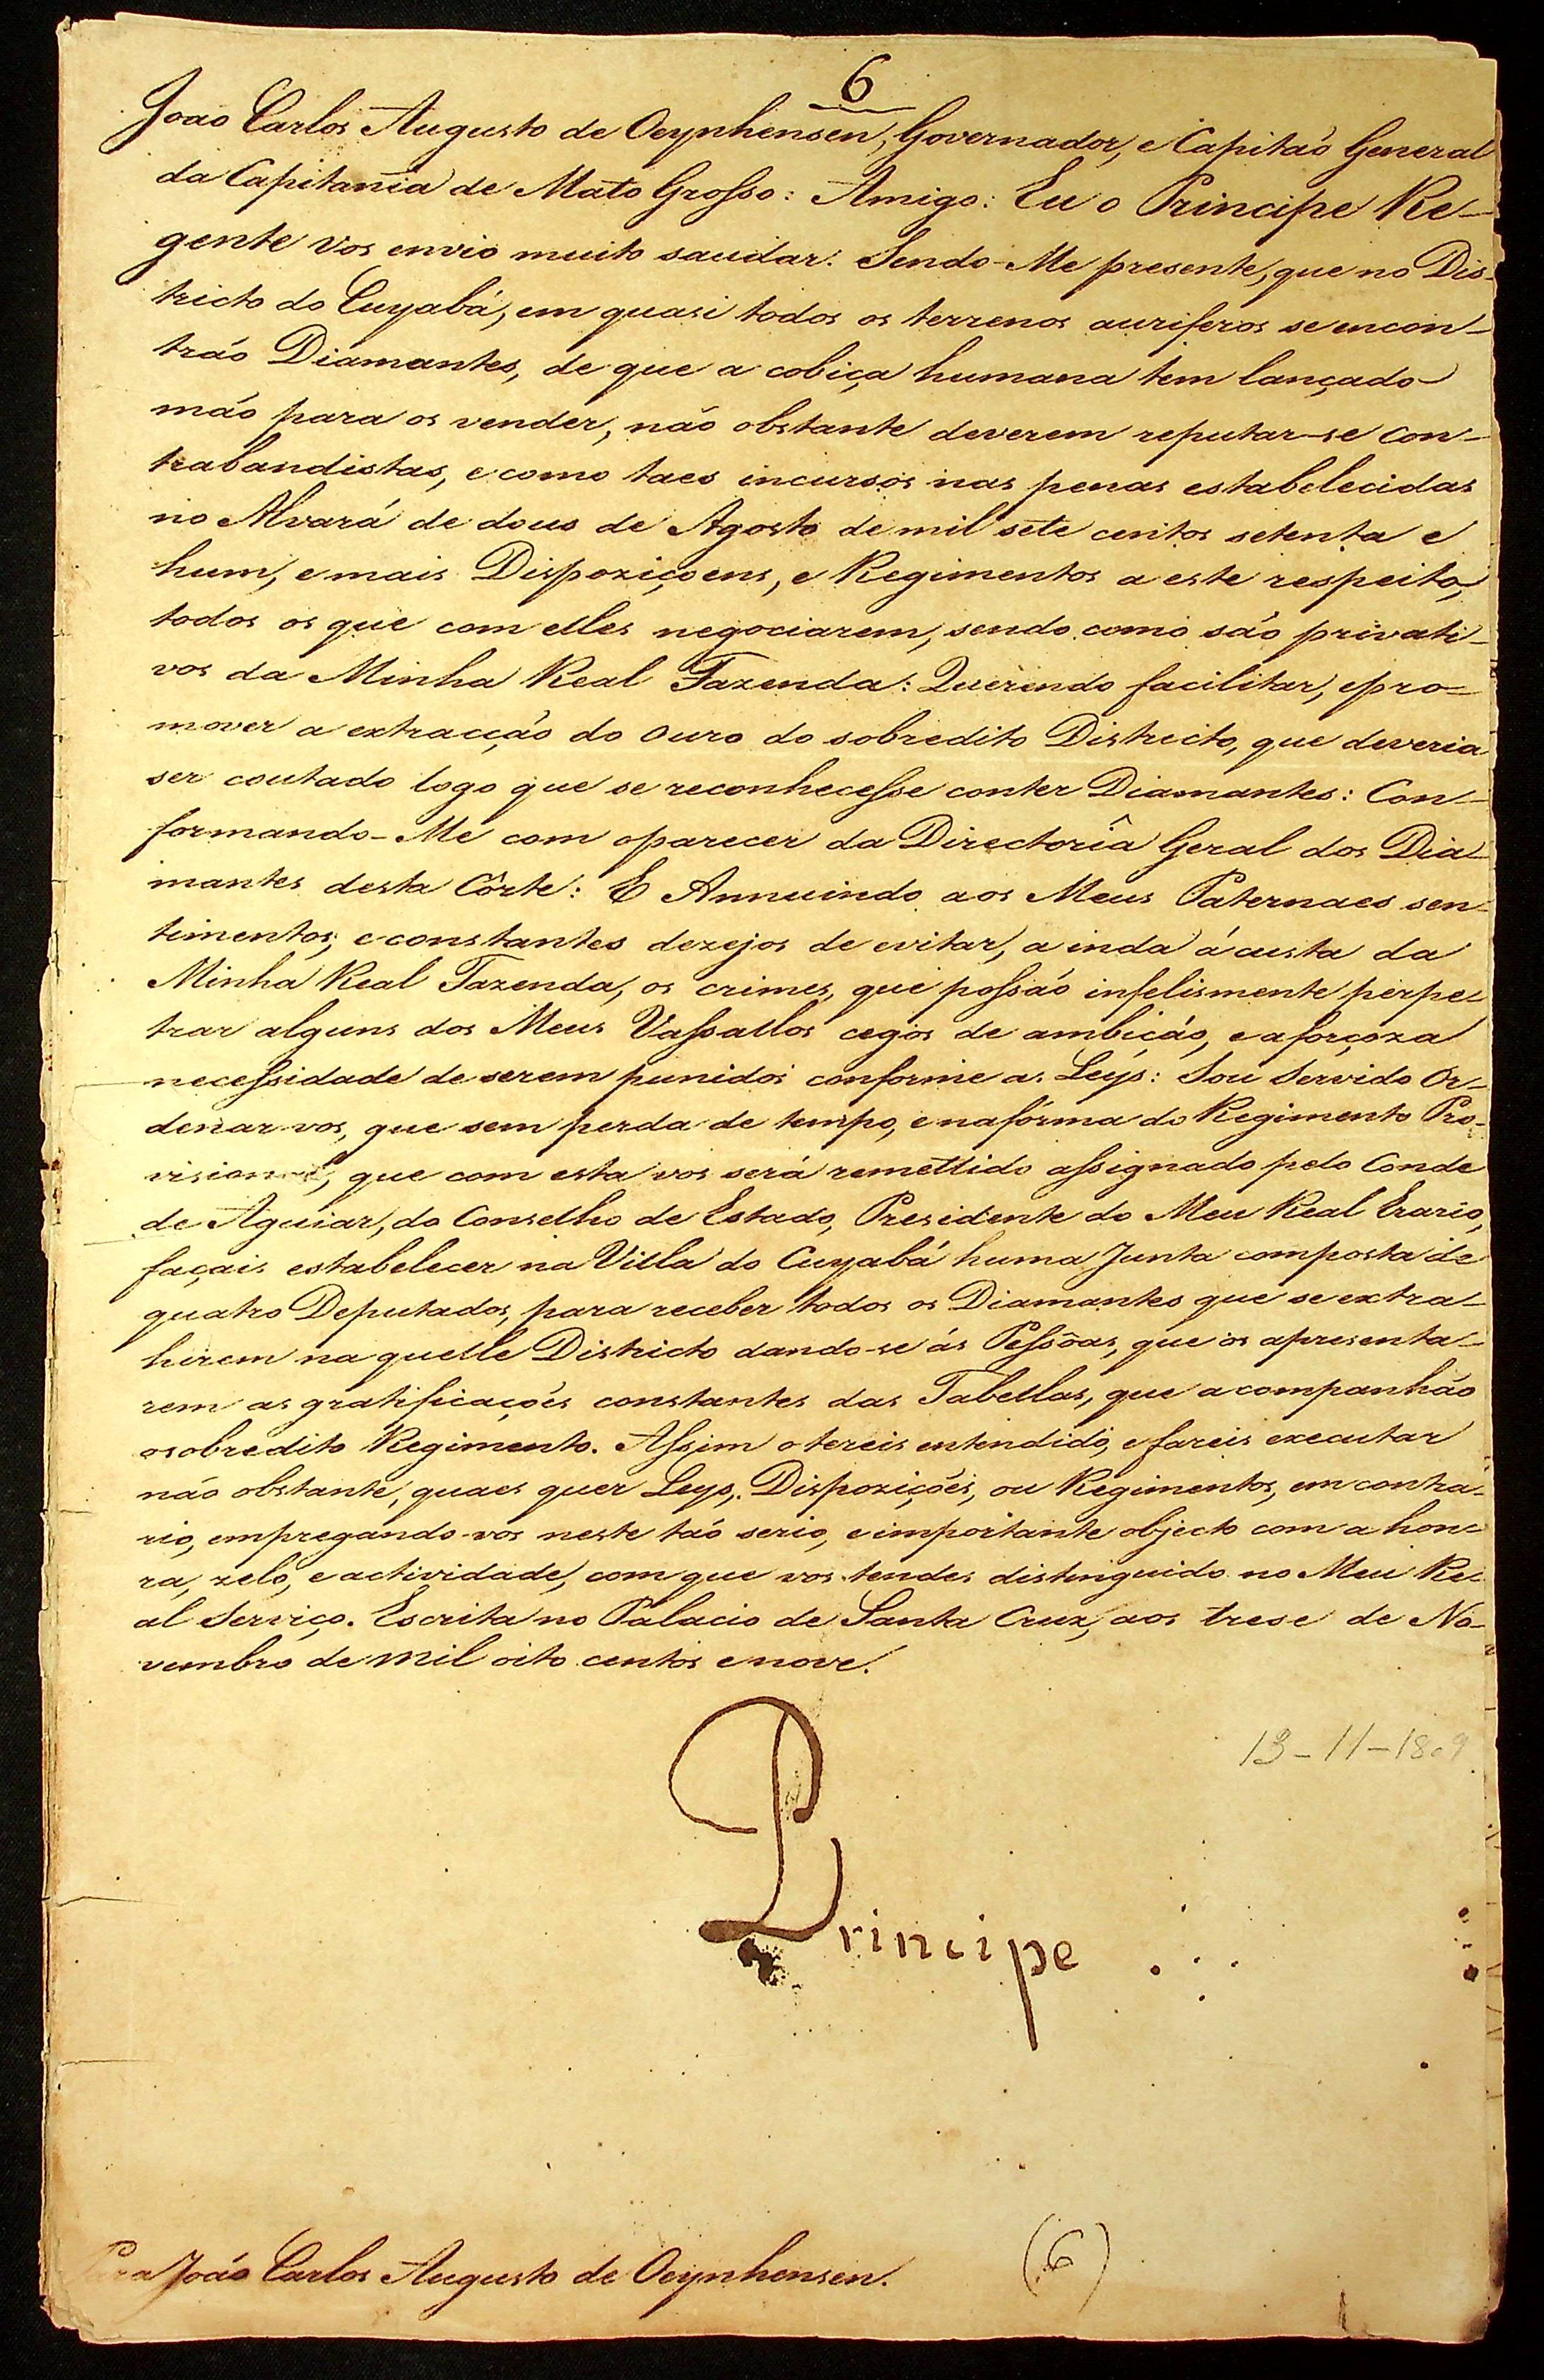 6
João Carlos Augusto de Oeynhensen, Governador, e Capitão General
da Capitania de Mato Grosso: Amigo: Eu o Principe Re-
gente vos envio muito saudar. Sendo-Me presente, que no Dis-
tricto do Cuyabá, em quasi todos os terrenos auriferos se encon-
trão Diamantes, de que a cobiça humana tem lançado
mão para os vender, não obstante deverem reputar-se con-
trabandistas, e como taes incursos nas penas estabelecidas
no Alvará de dous de Agosto de mil sete centos setenta e
hum, e mais Dispoziçoens, e Regimentos a este respeito,
todos os que com elles negociarem, sendo como são privati-
vos da Minha Real Fazenda: Querendo facilitar, e pro-
mover a extracção do ouro do sobredito Districto, que deveria
ser coutado logo que se reconhecesse conter Diamantes: Con-
formando-Me com o parecer da Directoria Geral dos Dia-
mantes desta Côrte: E Annuindo aos Meus Paternaes sen-
timentos, e constantes dezejos de evitar, ainda á custa da
Minha Real Fazenda, os crimes, que possão infelismente perpe-
trar alguns dos Meus Vassallos cegos de ambição, e a forçoza
necessidade de serem punidos conforme as Leys: Sou Servido Or-
denar-vos, que sem perda de tempo, e na fórma do Regimento Pro-
visional, que com esta vos será remettido assignado pelo Conde
de Aguiar, do Conselho de Estado, Presidente do Meu Real Erario,
façais estabelecer na Villa do Cuyabá huma Junta composta de
quatro Deputados, para receber todos os Diamantes que se extra-
hirem naquelle Districto dando-se ás Pessôas, que os apresenta-
rem as gratificações constantes das Tabellas, que acompanhão
o sobredito Regimento. Assim o tereis entendido, e fareis executar
não obstante, quaes quer Leys, Dispozições, ou Regimentos, em contra-
rio, empregando-vos neste tão serio, e importante objecto com a hon-
ra, zelo, e actividade, com que vos tendes distinguido no Meu Re-
al Serviço. Escrita no Palacio de Santa Cruz, aos trese de No-
vembro de mil oito centos e nove.
13-11-1809
Principe
Para João Carlos Augusto de Oeynhensen.
(6)